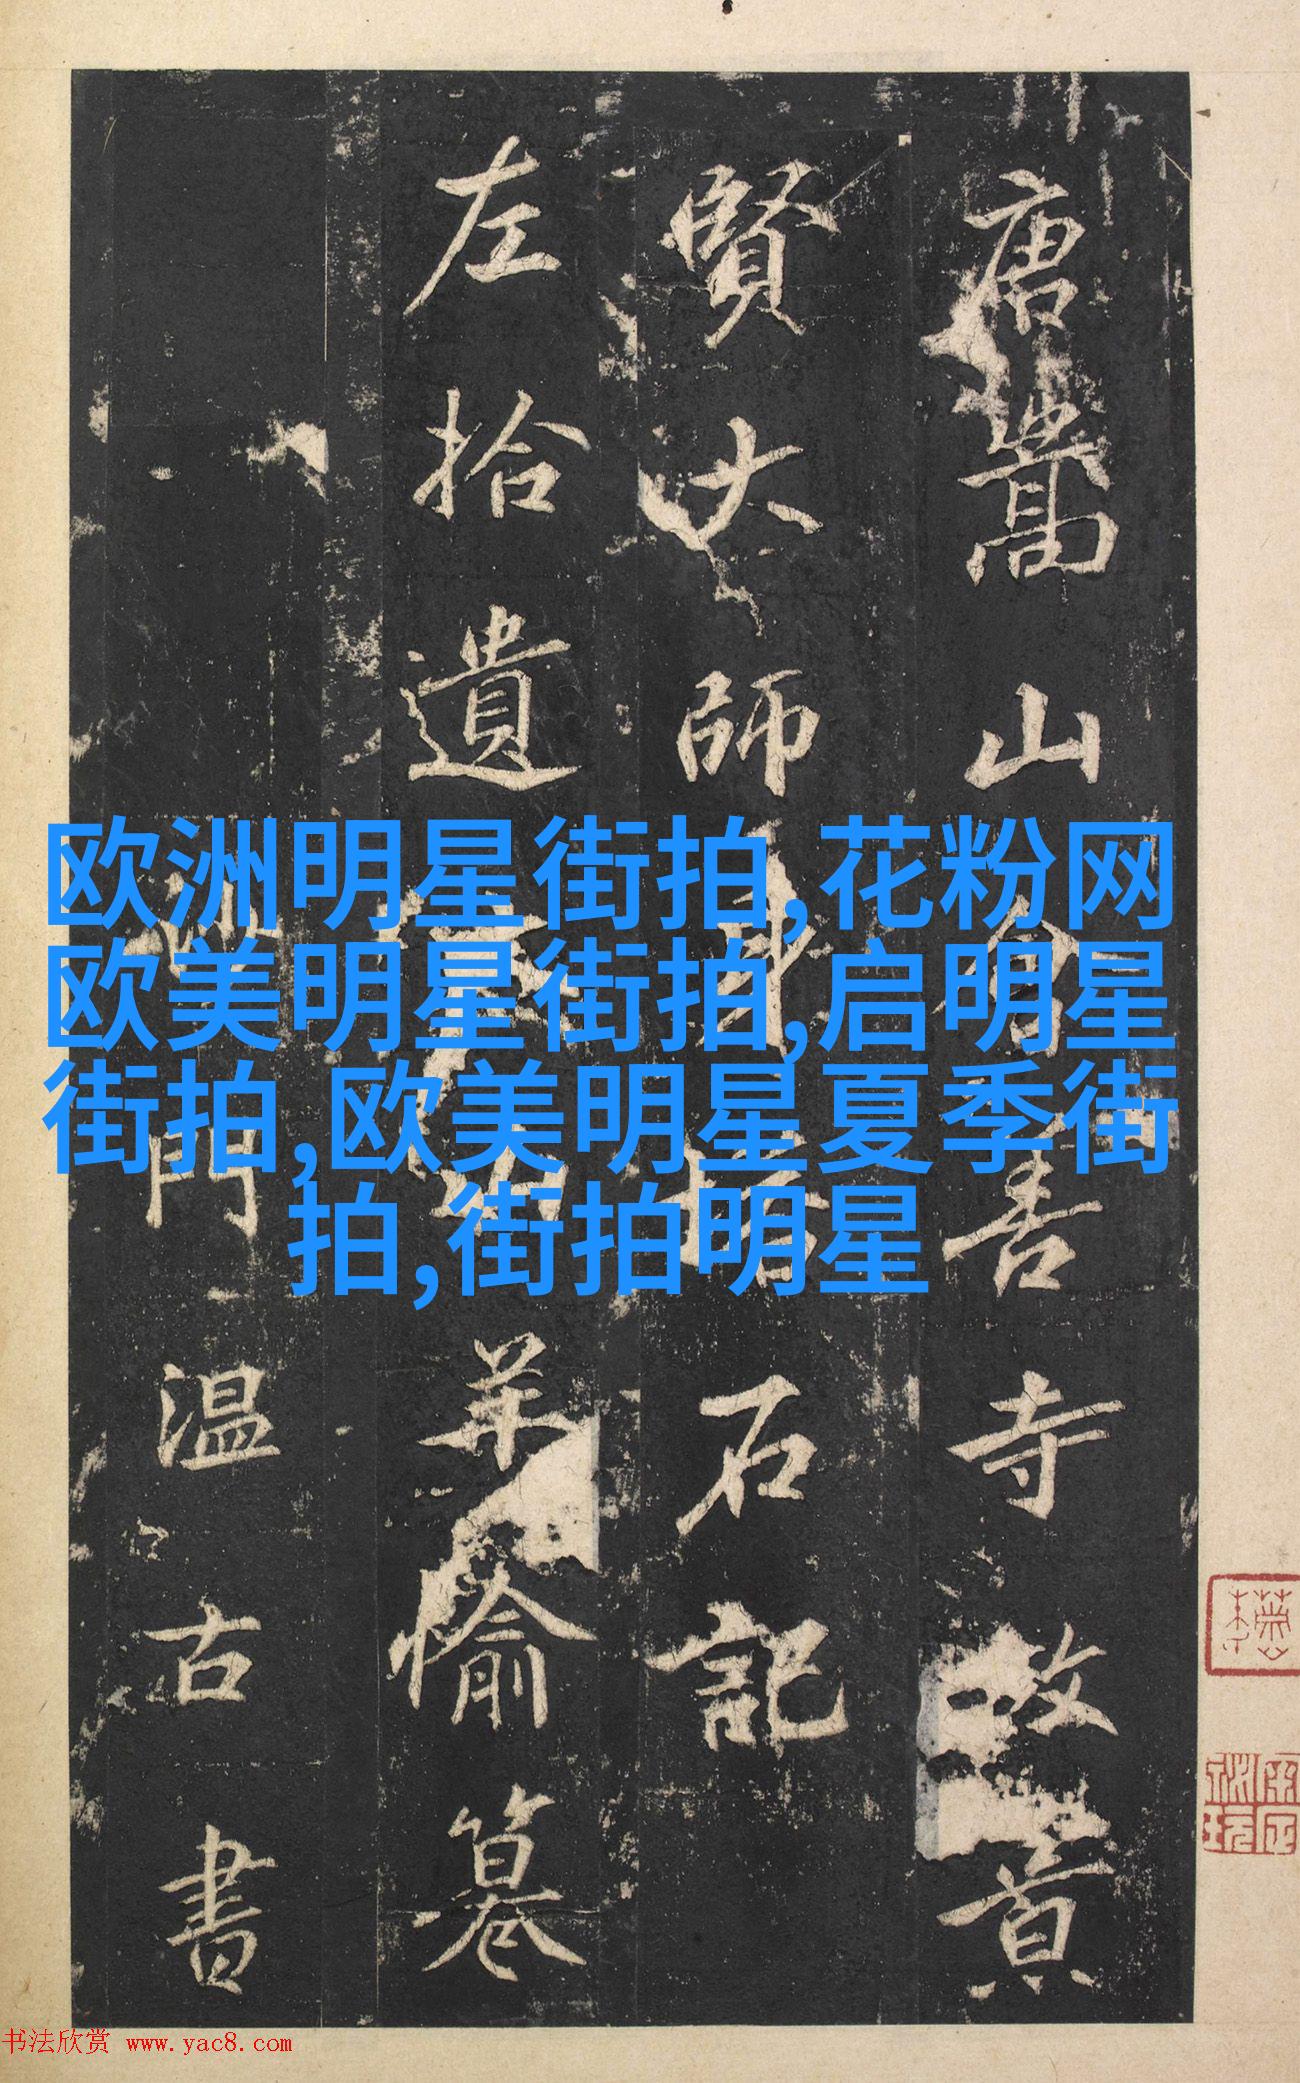 唐嵩山會善寺故景
賢大師身塔石記
左拾遺太山羊愉
沙門溫古書
欧洲明星街拍,花粉网
欧美明星街拍,启明星
街拍,欧美明星夏季街
拍,街拍明星
书法欣赏 www.yac8.com